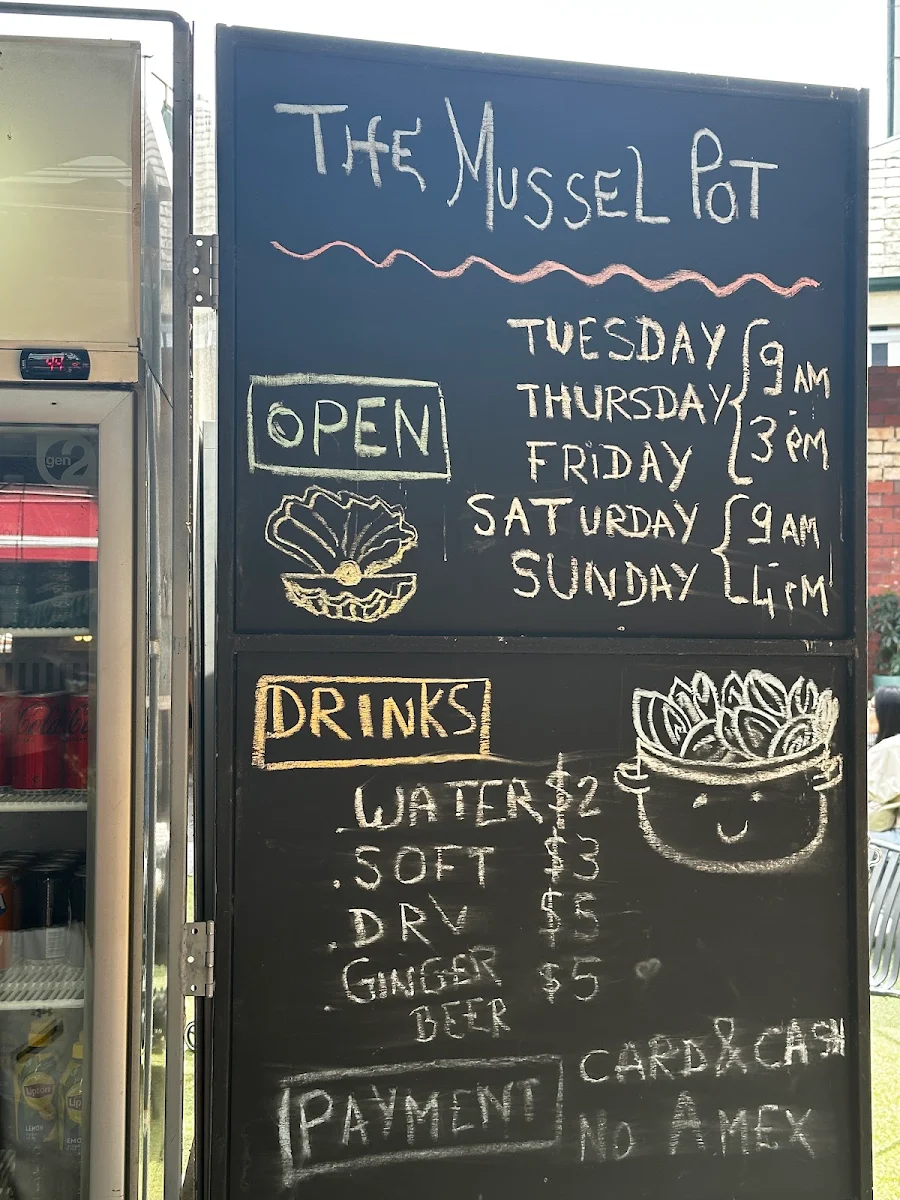 THE MUSSEL POT
OPEN
TUESDAY
THURSDAY
FRIDAY
9 AM
3 PM
SATURDAY
SUNDAY
9 AM
4 PM
DRINKS
. WATER $2
. SOFT $3
. DRV $5
. GINGER $5
BEER
PAYMENT
CARD & CASH
NO AMEX
gen2
Lipton
LEMON